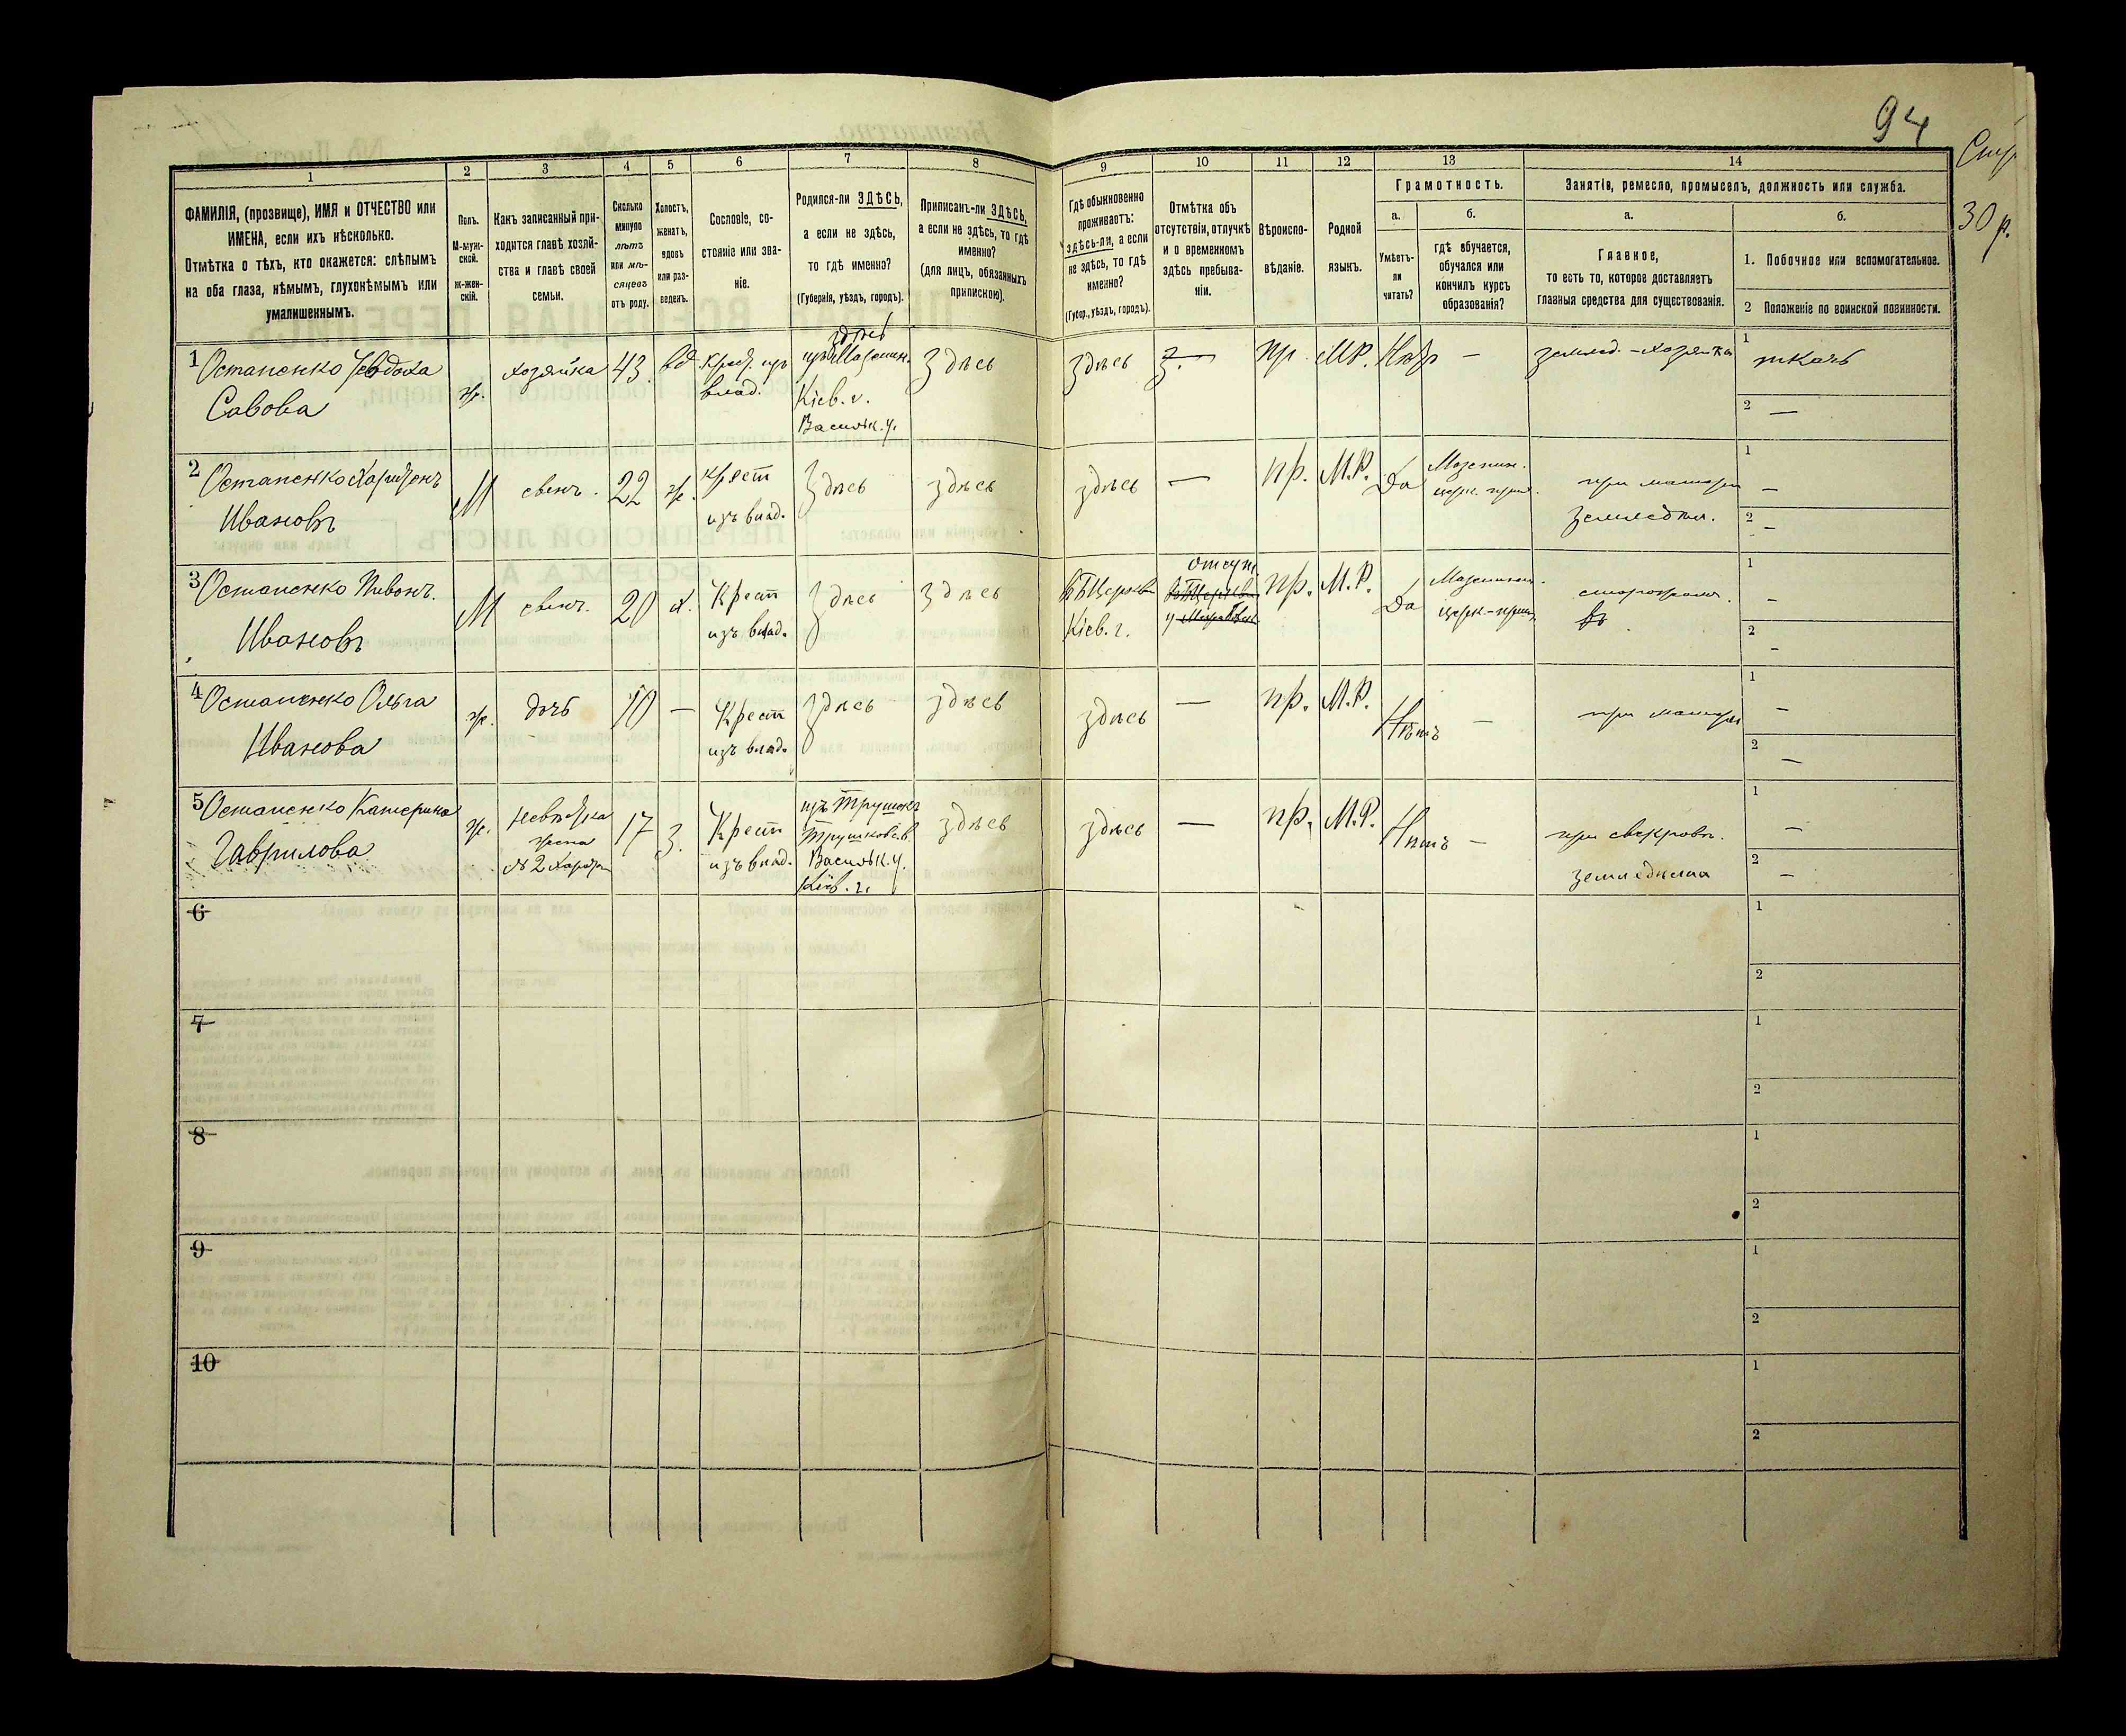 94
30 р.
1
2
3
4
5
6
7
8
9
10
11
12
13
14
ФАМИЛІЯ, (прозвище), ИМЯ и ОТЧЕСТВО или
ИМЕНА, если ихъ нѣсколько.
Отмѣтка о тѣхъ, кто окажется: слѣпымъ
на оба глаза, нѣмымъ, глухонѣмымъ или
умалишеннымъ.
Полъ.
М-муж-
ской.
Ж-жен-
скій.
Какъ записанный при-
ходится главѣ хозяй-
ства и главѣ своей
семьи.
Сколько
минуло
лѣтъ
или мѣ-
сяцевъ
отъ роду.
Холостъ,
женатъ,
вдовъ
или раз-
веденъ.
Сословіе, со-
стояніе или зва-
ніе.
Родился-ли ЗДѢСЬ,
а если не здѣсь,
то гдѣ именно?
(Губернія, уѣздъ, городъ).
Приписанъ-ли ЗДѢСЬ,
а если не здѣсь, то гдѣ
именно?
(для лицъ, обязанныхъ
припискою).
Гдѣ обыкновенно
проживаетъ:
здѣсь-ли, а если
не здѣсь, то гдѣ
именно?
(Губер., уѣздъ, городъ).
Отмѣтка объ
отсутствіи, отлучкѣ
и о временномъ
здѣсь пребыва-
ніи.
Вѣроиспо-
вѣданіе.
Родной
языкъ.
Грамотность.
а.
Умѣетъ-
ли
читать?
б.
гдѣ обучается,
обучался или
кончилъ курсъ
образованія?
Занятія, ремесло, промыселъ, должность или служба.
а.
Главное,
то есть то, которое доставляетъ
главныя средства для существованія.
б.
1. Побочное или вспомогательное.
2 Положеніе по воинской повинности.
1 Остапенко Явдоха
Савова
ж.
хозяйка
43
вд
Крест. изъ
влад.
здѣсь
Кіев. г.
Васильк. у.
здѣсь
здѣсь
пр.
М.Р.
Нѣтъ
—
землед. - хозяйка
1
ткачъ
2 —
2 Остапенко Харитонъ
Ивановъ
М
сынъ.
22
ж.
крест
изъ влад.
здѣсь
здѣсь
здѣсь
—
пр.
М.Р.
Да
при матери
земледѣл.
1 —
2 —
3 Остапенко Пивонъ.
Ивановъ
М
сынъ.
20
х.
Крест
изъ влад.
здѣсь
здѣсь
Б Церковь
Кіев. г.
отсут
пр.
М.Р.
Да
1 —
2 —
4 Остапенко Ольга
Иванова
ж.
дочь
10
—
Крест
изъ влад.
здѣсь
здѣсь
здѣсь
—
пр.
М.Р.
Нѣтъ
—
при матери
1 —
2 —
5 Остапенко Катерина
Гаврилова
ж.
невѣстка
жена
№ 2 Харит
17
з.
Крест
изъ влад.
изъ Трушк
Васильк. у.
Кіев. г.
здѣсь
здѣсь
—
пр.
М.Р.
Нѣтъ
—
при свекрови.
1 —
2 —
6
1
2
7
1
2
8
1
2
9
1
2
10
1
2